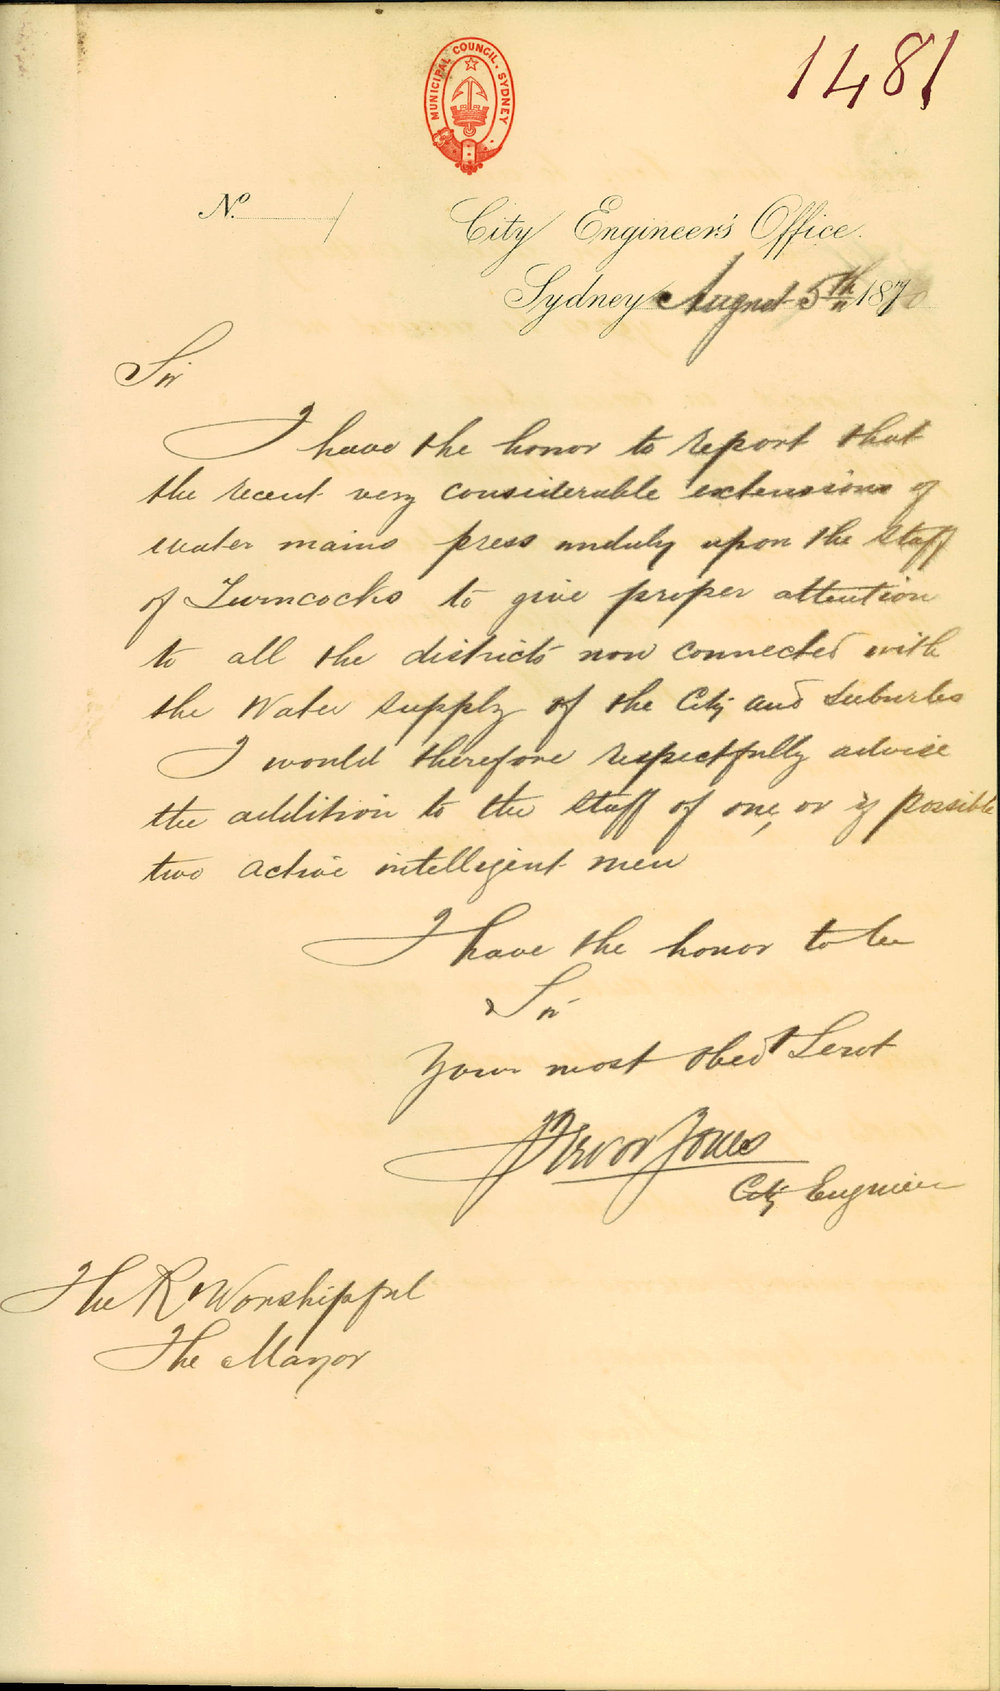 1481
MUNICIPAL COUNCIL. SYDNEY
No.
City Engineer's Office.
Sydney August 5th 1870
Sir
I have the honor to report that
the recent very considerable extensions of
water mains press unduly upon the Staff
of Turncocks to give proper attention
to all the districts now connected with
the Water supply of the City and Suburbs
I would therefore respectfully advise
the addition to the Staff of one, or if possible
two active intelligent men
I have the honor to be
Sir
Your most obedt Servt
Trevor Jones
City Engineer
The Rt Worshipful
The Mayor